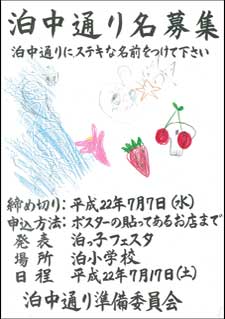 泊中通り名募集
泊中通りにステキな名前をつけて下さい
締め切り:平成22年7月7日(水)
申込方法:ポスターの貼ってあるお店まで
発表 泊っ子フェスタ
場所 泊小学校
日程 平成22年7月17日(土)
泊中通り準備委員会